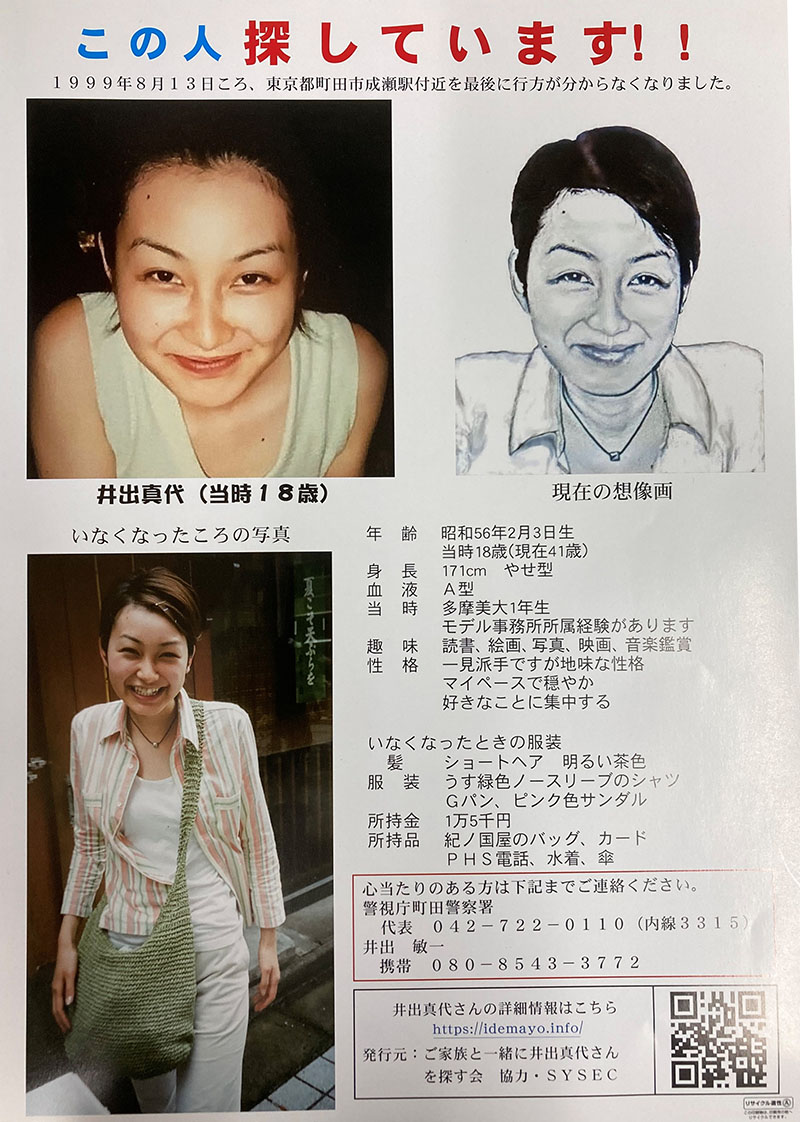 この人 探しています!!
1999年8月13日ころ、東京都町田市成瀬駅付近を最後に行方が分からなくなりました。
井出真代（当時18歳）
現在の想像画
いなくなったころの写真
夏こそ天ぷらを
年　齢　昭和56年2月3日生
当時18歳(現在41歳)
身　長　171cm　やせ型
血　液　A型
当　時　多摩美大1年生
モデル事務所所属経験があります
趣　味　読書、絵画、写真、映画、音楽鑑賞
性　格　一見派手ですが地味な性格
マイペースで穏やか
好きなことに集中する
いなくなったときの服装
髪　ショートヘア　明るい茶色
服　装　うす緑色ノースリーブのシャツ
Gパン、ピンク色サンダル
所持金　1万5千円
所持品　紀ノ国屋のバッグ、カード
PHS電話、水着、傘
心当たりのある方は下記までご連絡ください。
警視庁町田警察署
代表　042-722-0110（内線3315）
井出　敏一
携帯　080-8543-3772
井出真代さんの詳細情報はこちら
https://idemayo.info/
発行元：ご家族と一緒に井出真代さん
を探す会　協力・SYSEC
リサイクル適性Ⓐ